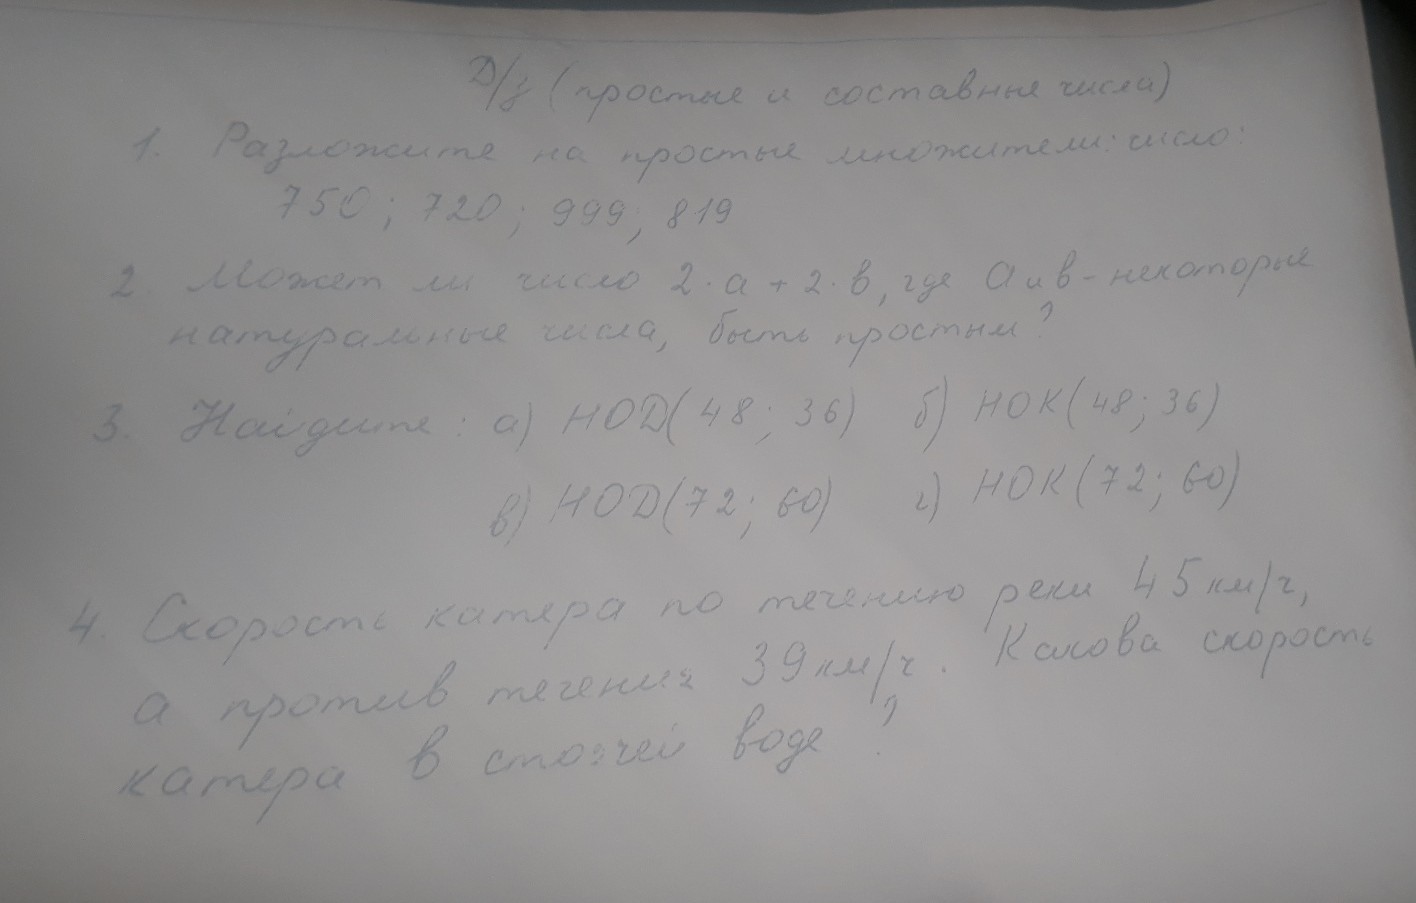 Д/з (простые и составные числа)
1. Разложите на простые множители число:
750; 720; 999; 819
2. Может ли число 2·a + 2·в, где a и в - некоторые
натуральные числа, быть простым?
3. Найдите: а) НОD(48; 36) б) НОК(48; 36)
в) НОD(72; 60) г) НОК(72; 60)
4. Скорость катера по течению реки 45 км/ч,
а против течения 39 км/ч. Какова скорость
катера в стоячей воде?